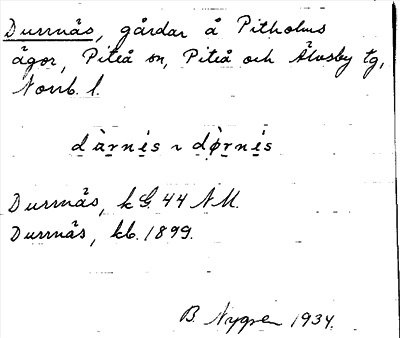 Durrnäs, gårdar å Pitholms
ägor, Piteå sn, Piteå och Älvsby tg,
Norrb. l.
dà̱rnis ~ dø̀rnis
Durrnäs, kG. 44 NM.
Durrnäs, kb. 1899.
B. Nygren 1934.